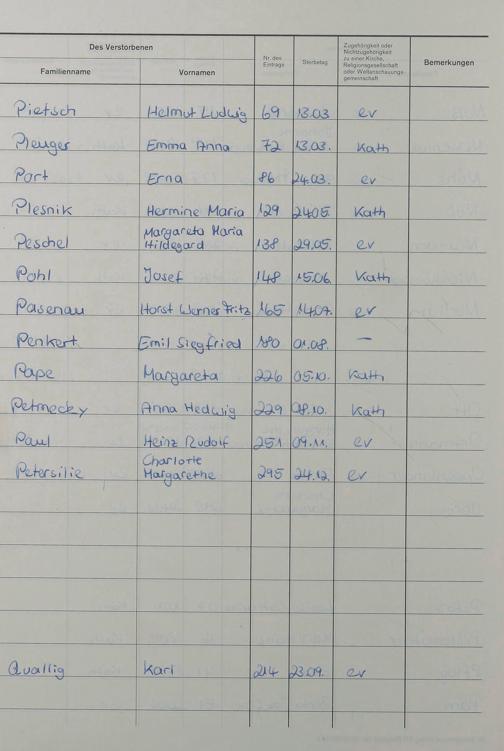 Des Verstorbenen
Familienname Vornamen Nr. des Eintrags Sterbetag Zugehörigkeit oder Nichtzugehörigkeit zu einer Kirche, Religionsgesellschaft oder Weltanschauungsgemeinschaft Bemerkungen
Pietsch Helmut Ludwig 69 13.03 ev
Pleuger Emma Anna 72 13.03. Kath
Port Erna 86 24.03. ev
Plesnik Hermine Maria 129 24.05. Kath
Peschel Margareta Maria Hildegard 138 29.05. ev
Pohl Josef 148 15.06. Kath
Pasenau Horst Werner Fritz 165 14.07. ev
Penkert Emil Siegfried 180 01.08. —
Pape Margareta 226 05.10. Kath
Petmecky Anna Hedwig 229 08.10. Kath
Paul Heinz Rudolf 251 09.11. ev
Petersilie Charlotte Margarethe 295 24.12. ev
Quallig Karl 214 23.09. ev